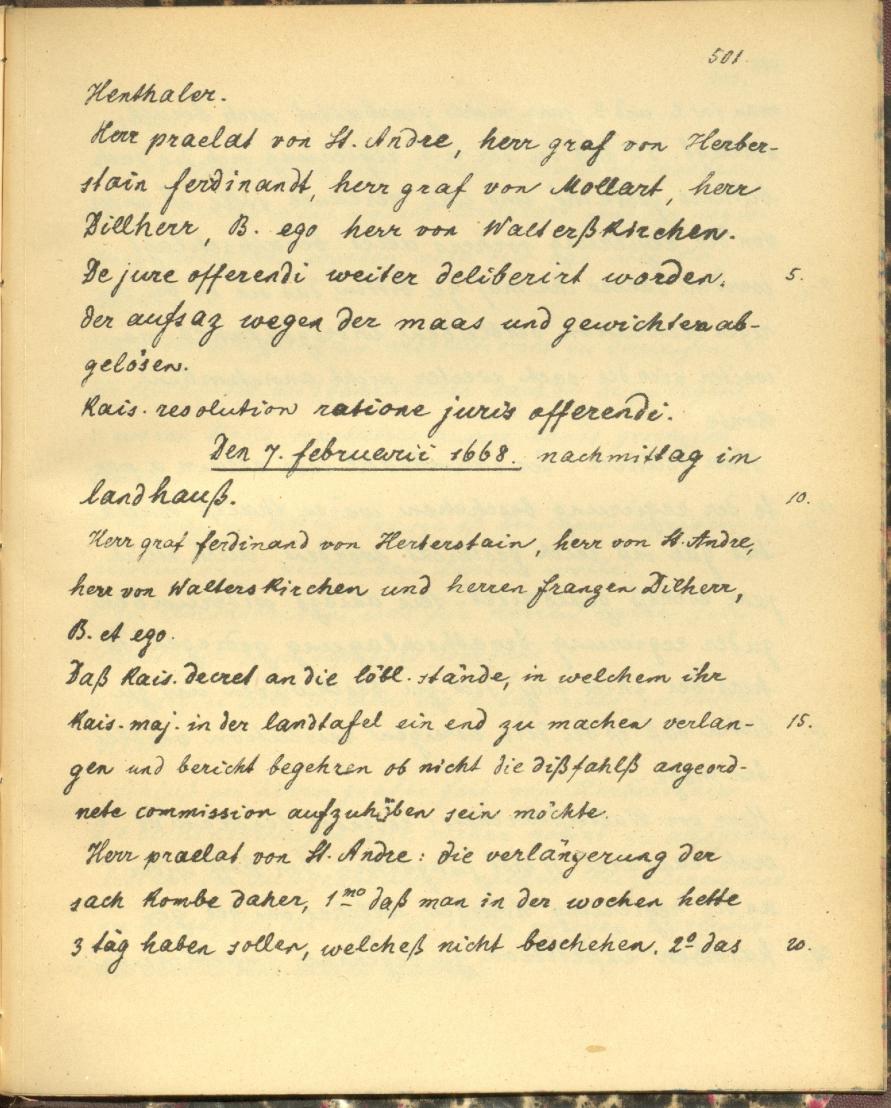 501.
Henthaler.
Herr praelat von St. Andre, herr graf von Herber-
stain ferdinandt, herr graf von Mollart, herr
Dillherr, B. ego herr von Walterßkirchen.
De jure offerendi weiter deliberirt worden. 5.
der aufsaz wegen der maas und gewichten ab-
gelösen.
Kais. resolution ratione juris offerendi.
Den 7. februarii 1668. nachmittag im
landhauß. 10.
Herr graf ferdinand von Herberstain, herr von St. Andre,
herr von Walterskirchen und herren franzen Dilherr,
B. et ego.
Daß Kais. decret an die löbl. stände, in welchem ihr
Kais. maj. in der landtafel ein end zu machen verlan- 15.
gen und bericht begehren ob nicht die dißfahlß angeord-
nete commission aufzuhöben sein möchte.
Herr praelat von St. Andre: die verlängerung der
sach kombe daher, 1mo daß man in der wochen hette
3 täg haben sollen, welcheß nicht beschehen. 2o das 20.